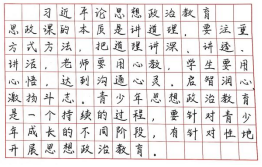 习近平论思想政治教育
思政课的本质是讲道理，要注重
方式方法，把道理讲深、讲透、
讲活，老师要用心教，学生要用
心悟，达到沟通心灵、启智润心
激扬斗志。青少年思想政治教育
是一个持续的过程，要针对青少
年成长的不同阶段，有针对性地
开展思想政治教育。